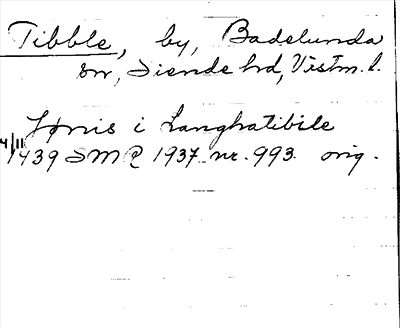 Tibble, by, Badelunda
sn, Siende hd, Västm. l.
Jønis i Langhatibile
4/11 1439 SMR 1937 nr. 993. orig.